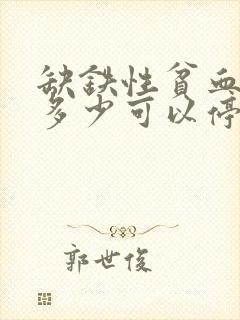 缺铁性贫血
多少可以停
郭世俊